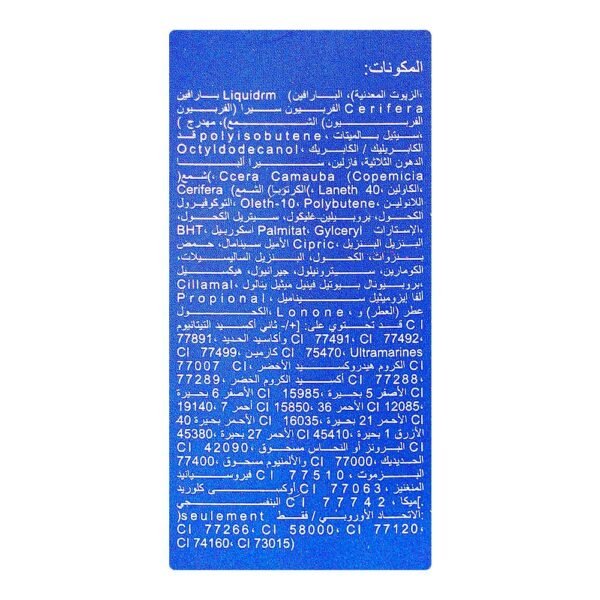 المكونات:
،الزيوت المعدنية)، البارافين) Liquidrm بارافين
Cerifera الفربيون سيرا (الفربيون
الفربيون) الشمع)، مهدرج )
،سيتيل بالميتات، polyisobutene قد
Octyldodecanol، الكابريليك / الكابريك
الدهون الثلاثية، فازلين، سيرا ألبا
)شمع(، Ccera Camauba (Copemicia
Cerifera الكرتوبا) الشمع)(، Laneth 40، الكاولين،
التوكوفيرول، Oleth-10، Polybutene، اللانولين،
الكحول، بروبيلين غليكول، سيتريل الكحول،
BHT، اسكوربيل Palmitat، Gylceryl الإستارات،
الأميل سينامال، حمض Cipric، البنزيل البنزيل
بنزوات، الكحول، البنزيل الساليسيلات،
الكومارين، سيترونيلول، جيرانيول، هيكسيل
Cillamal، بروبيونال بيوتيل فينيل ميثيل ينالول،
Propional، ألفا إيزوميثيل سيناميل
الكحول، Lonone، عطر (العطر) و
قد تحتوي على: [+/- ثاني أكسيد التيتانيوم CI
77891، وأكاسيد الحديد CI 77491، CI 77492،
CI 77499، كارمين CI 75470، Ultramarines
77007 CI الكروم هيدروكسيد الأخضر،
77289، أكسيد الكروم الخضر CI 77288،
الأصفر 5 بحيرة CI 15985، الأصفر 6 بحيرة
19140، أحمر 7 CI 15850، الأحمر 36 CI 12085،
الأحمر 21 بحيرة CI 16035، الأحمر بحيرة 40
45380، الأحمر 27 بحيرة CI 45410، الأزرق 1 بحيرة
CI 42090، البرونز أو النحاس مسحوق CI
77400، والألمنيوم مسحوق CI 77000، الحديديك
فيروسيانيد CI 77510، البزموت
أوكسي كلوريد CI 77063، المنغنيز
البنفسجي CI 77742، ميكا].
)seulement الاتحاد الأوروبي / فقط:
CI 77266، CI 58000، CI 77120،
CI 74160، CI 73015)